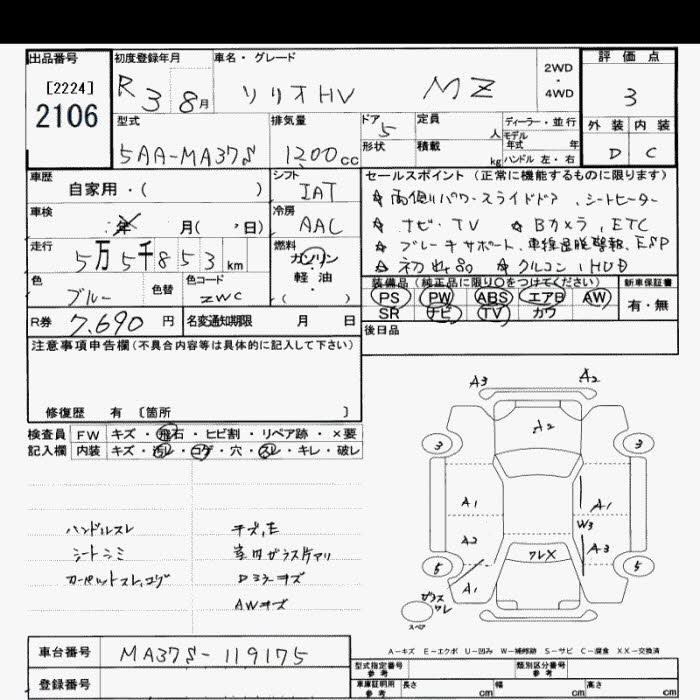 出品番号 初度登録年月 車名・グレード 評価点
[2224]
2106
R 3 8月 ソリオHV MZ 2WD・4WD 3
型式 排気量 ドア 5 定員 人 ディーラー・並行 外装 内装
5AA-MA37S 1200cc 形状 積載 kg モデル年式 年 ハンドル 左・右 D C
車歴 自家用・( ) シフト IAT セールスポイント (正常に機能するものに限ります)
☆両側パワースライドドア、シートヒーター
車検 年 月( ・ 日) 冷房 AAC ☆ナビ・TV ☆Bカメラ, ETC
走行 5万5千853km 燃料 ガソリン・軽油・( ) ☆ブレーキサポート、車線逸脱警報、ESP
☆ ☆クルコン, HUD
色 ブルー 色替 色コード ZWC 装備品 (純正品に限り○をつけてください) 新車保証書
PS PW ABS エアB AW 有・無
R券 7,690円 名変通知期限 月 日 SR ナビ TV カワ
後日品
注意事項申告欄(不具合内容等は具体的に記入して下さい)
修復歴 有 〔箇所 〕
検査員 FW キズ・飛石・ヒビ割・リペア跡・×要
記入欄 内装 キズ・汚レ・コゲ・穴・スレ・キレ・破レ
A3 A2
A2
3 3
A1 A1
W3
A2 A3
ワレX
5 5
A1
ガラスワレ
スペア
ハンドルスレ キズ,E
シートシミ
カーペットスレ,コゲ Dミラーキズ
AWキズ
A-キズ E-エクボ U-凹み W-補修跡 S-サビ C-腐食 XX-交換済
車台番号 MA37S-119175
型式指定番号 参考 類別区分番号 参考
登録番号 車庫証明用 参考 長さ cm 幅 cm 高さ cm